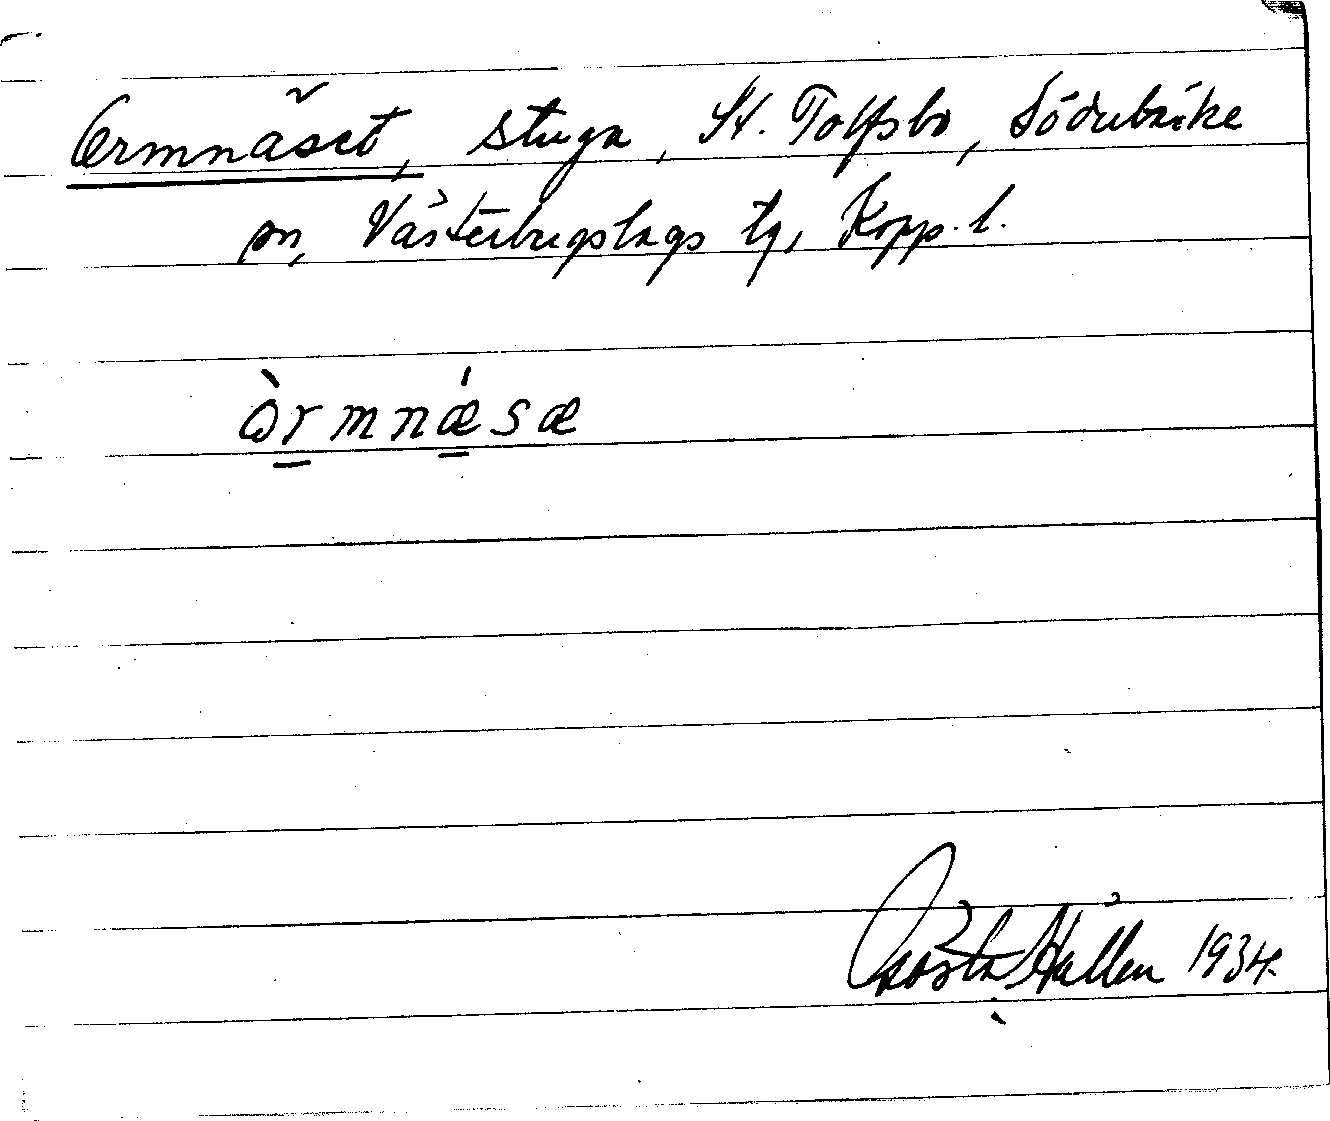 Ormnäset, stuga, St. Tolfsbo, Söderbärke
sn, Västerbergslags tg, Kopp. l.
òrmnǽsæ
Gösta Hallén 1934.